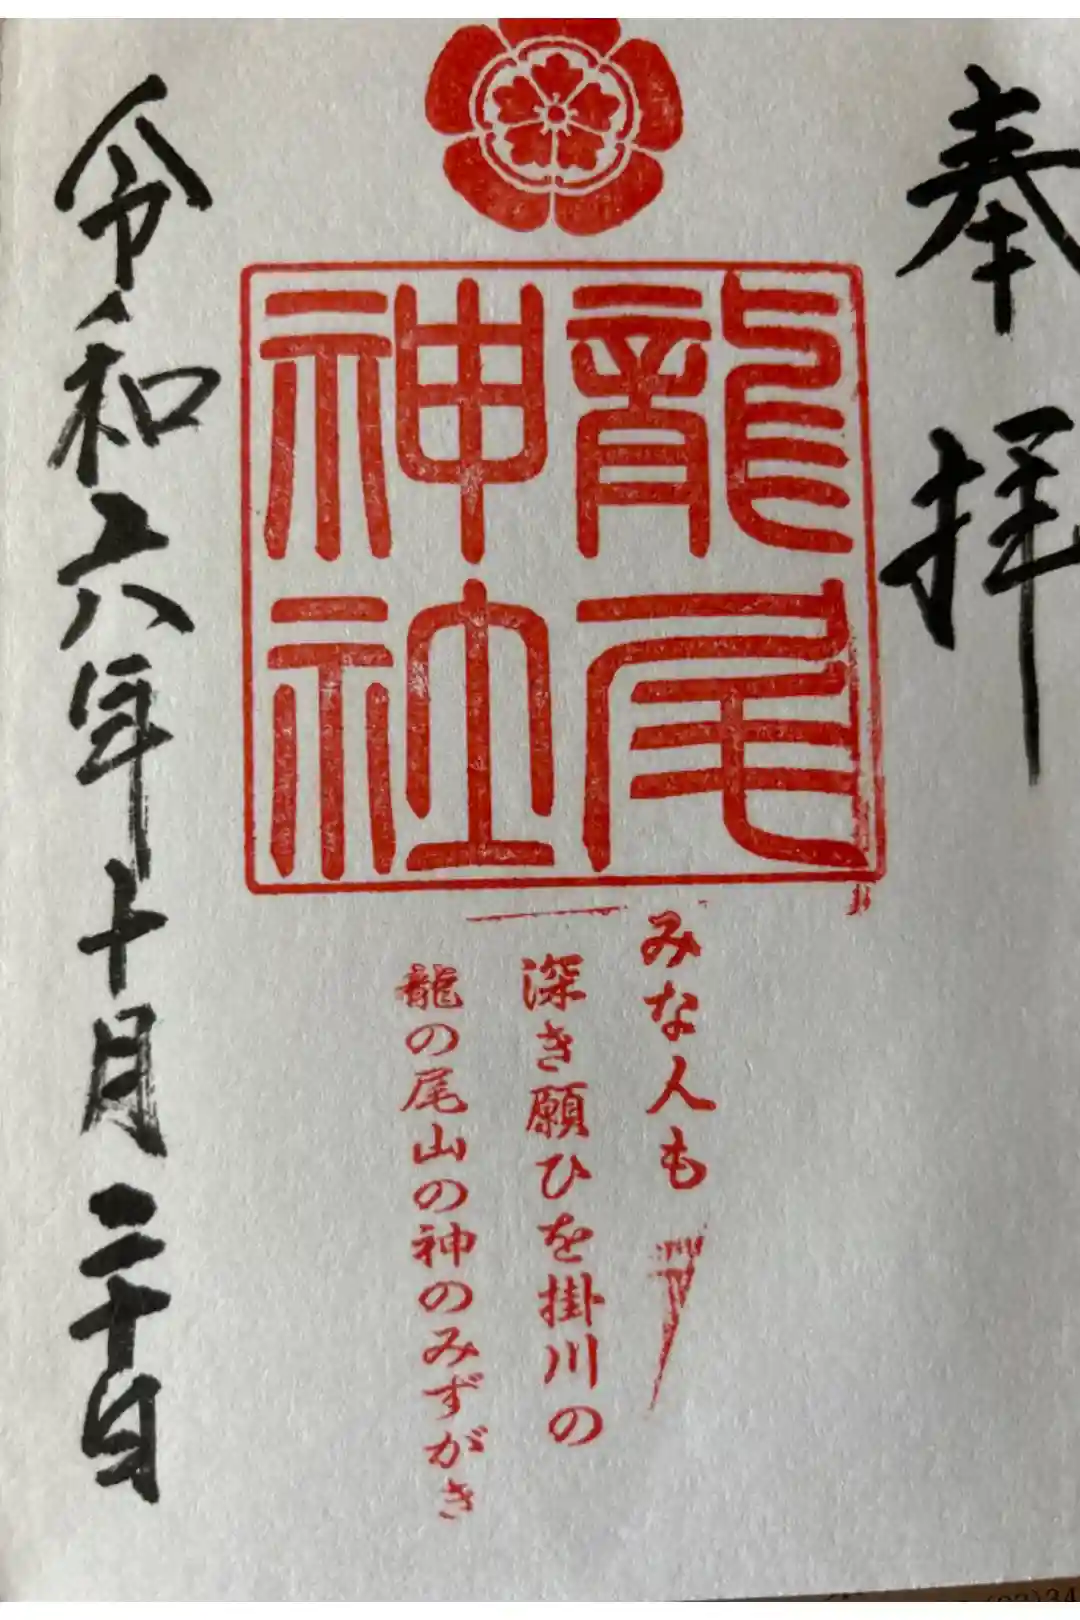 奉拝
龍尾
神社
みな人も
深き願ひを掛川の
龍の尾山の神のみずがき
令和六年十月二十日